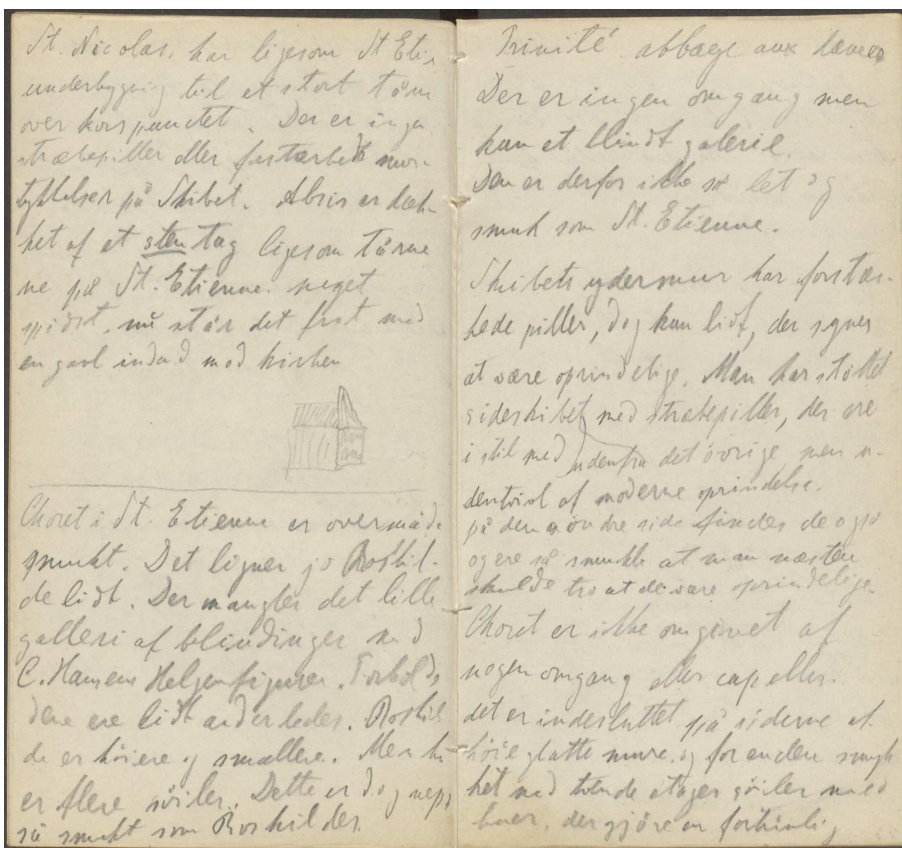 St. Nicolas, har ligesom St Eti.
underbygning til et stort tårn
over korspunctet. Der er ingen
stræbepiller eller forstærkede mur-
tykkelser på Skibet. Absis er dæk-
ket af et sten tag ligesom tårne
ne på St. Etienne. meget
spidst, nu står det frit med
en gavl indad mod kirken
Choret i St. Etienne er overmåde
smukt. Det ligner jo Roskil-
de lidt. Der mangler det lille
galleri af blindinger med
C. Hansens Helgenfigurer. Forhold
dene ere lidt anderledes. Roskil
de er höiere og smallere. Men her
er flere söiler. Dette er dog nepp
så smukt som Roskildes.
Trinité abbaye aux dames
Der er ingen omgang men
kun et blindt galerie.
Den er derfor ikke så let og
smuk som St. Etienne.
Skibets ydermur har forstær-
kede piller, dog kun lidt, der synes
at være oprindelige. Man har støttet
sideskibet med stræbepiller, der ere
i stil med udenfra det övrige men u-
dentvivl af moderne oprindelse.
på den nordre side findes de også
og ere så smukke at man næsten
skulde tro at de vare oprindelige.
Choret er ikke omgivet af
nogen omgang eller capeller.
det er indesluttet på siderne af
höie glatte mure, og for enden smyk
ket med tvende etager söiler med
buer, der gjöre en fortrinlig